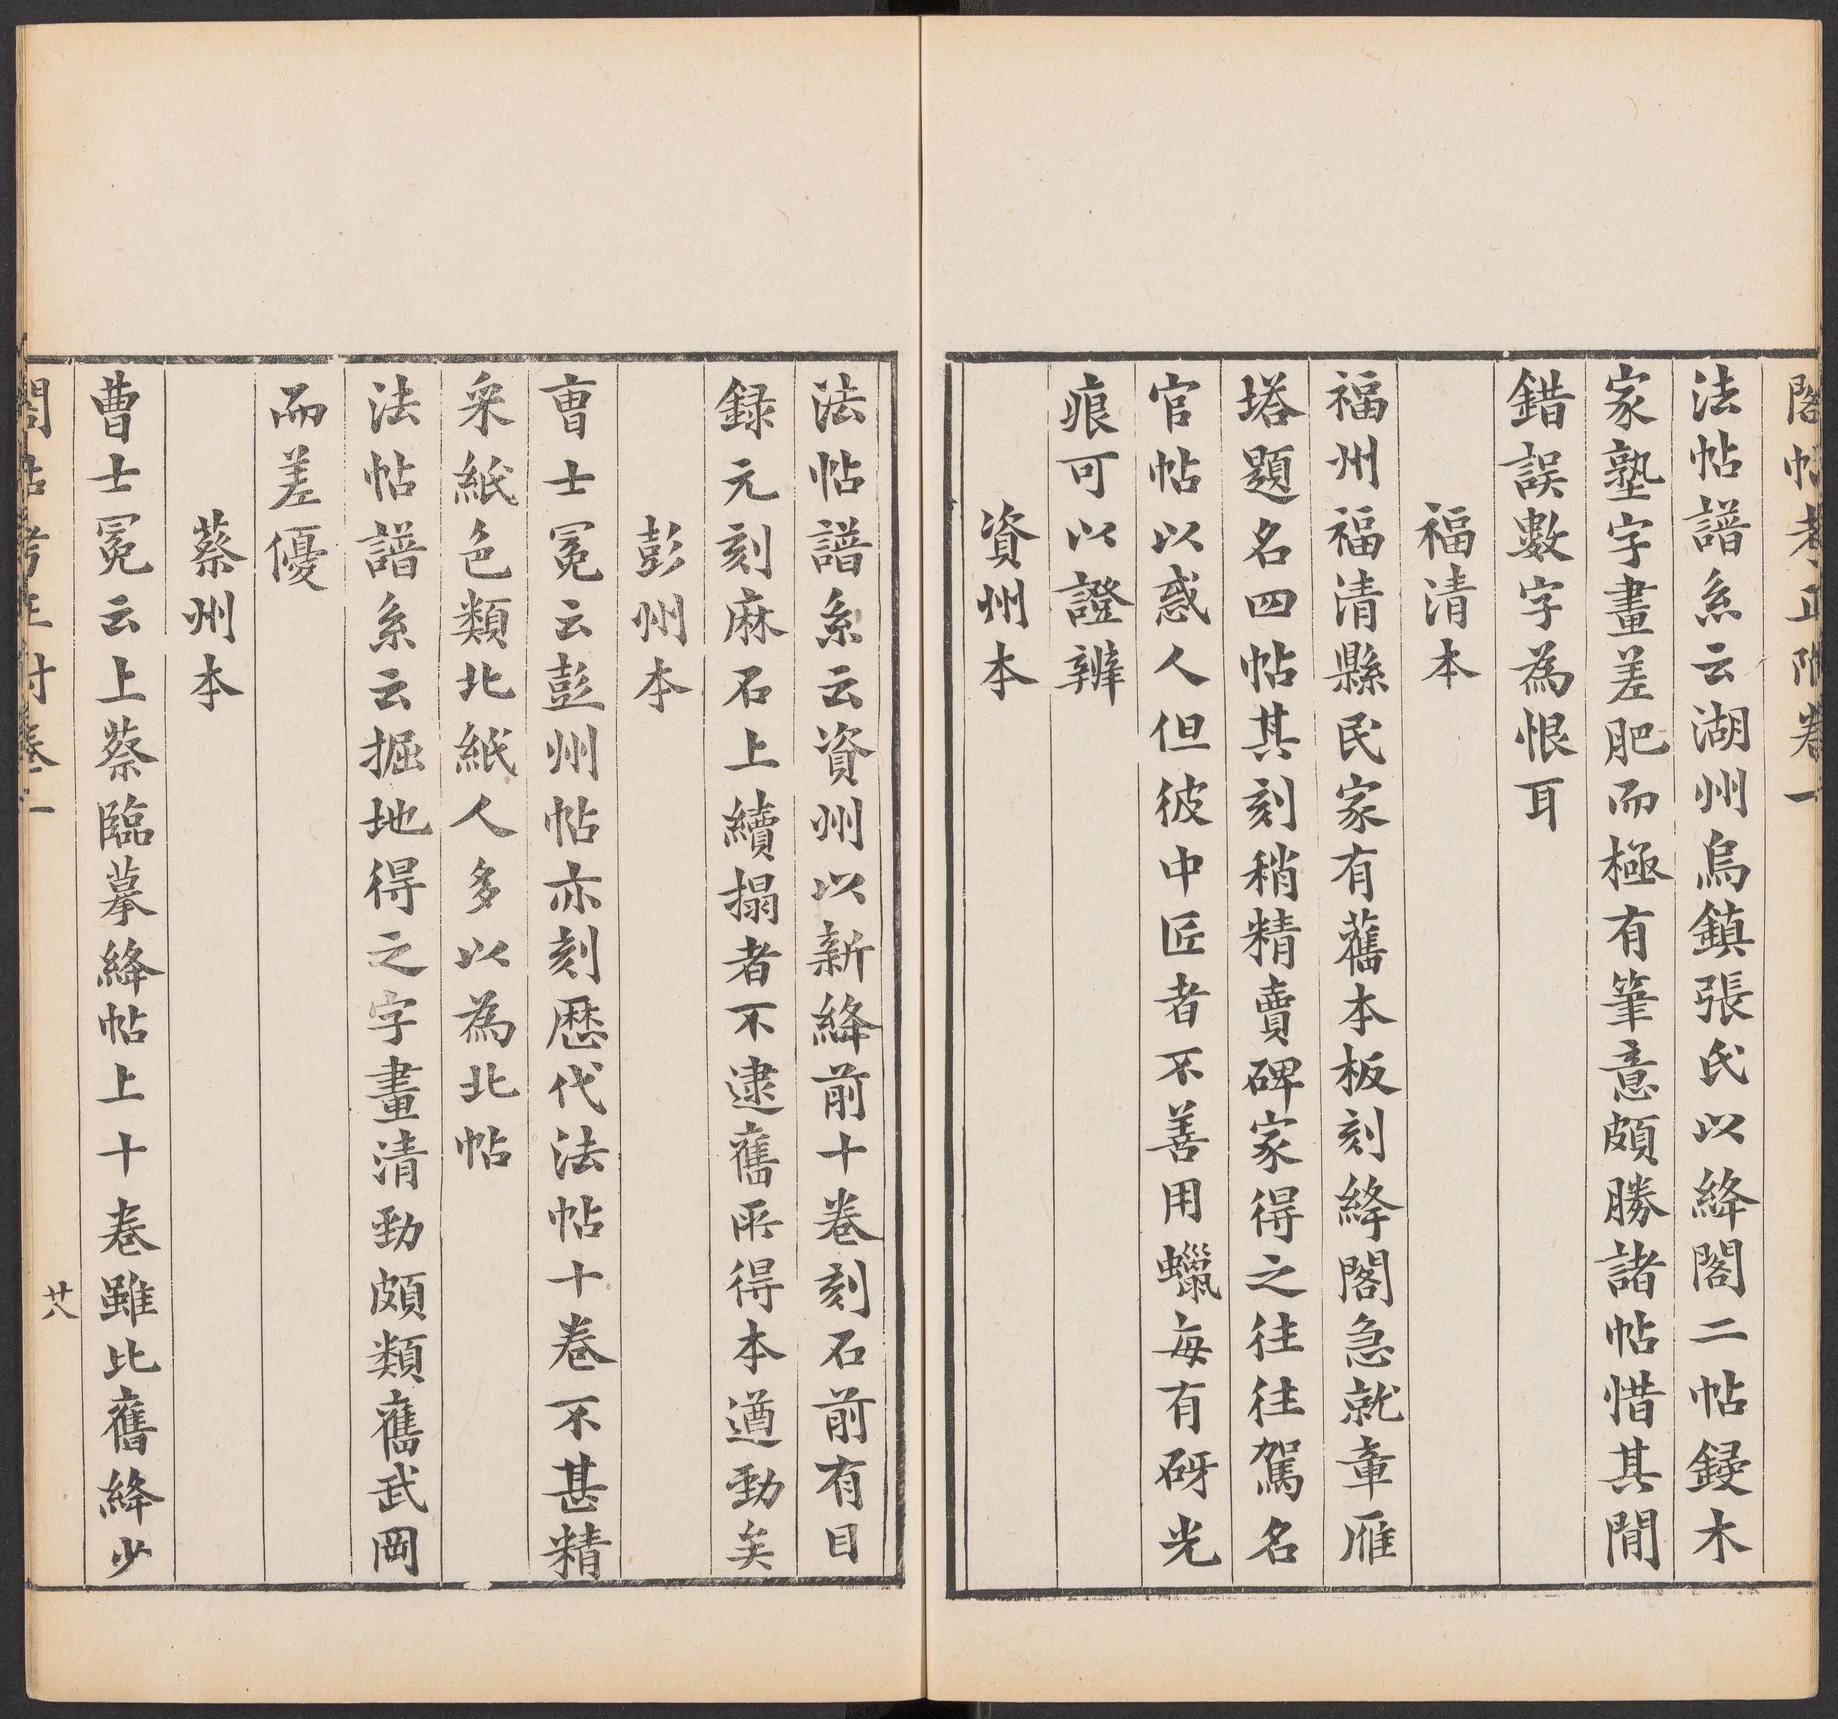 閣帖考正附卷一
法帖譜系云湖州烏鎮張氏以絳閣二帖鋟木
家塾字畫差肥而極有筆意頗勝諸帖惜其閒
錯誤數字為恨耳
福清本
福州福清縣民家有舊本板刻絳閣急就章雁
塔題名四帖其刻稍精賣碑家得之往往駕名
官帖以惑人但彼中匠者不善用蠟每有砑光
痕可以證辨
資州本
法帖譜系云資州以新絳前十卷刻石前有目
録元刻麻石上續搨者不逮舊所得本遒勁矣
彭州本
曺士冕云彭州帖亦刻歷代法帖十卷不甚精
采紙色類北紙人多以為北帖
法帖譜系云掘地得之字畫清勁頗類舊武岡
而差優
蔡州本
曹士冕云上蔡臨摹絳帖上十卷雖比舊絳少
閣帖考正附卷一
廿八